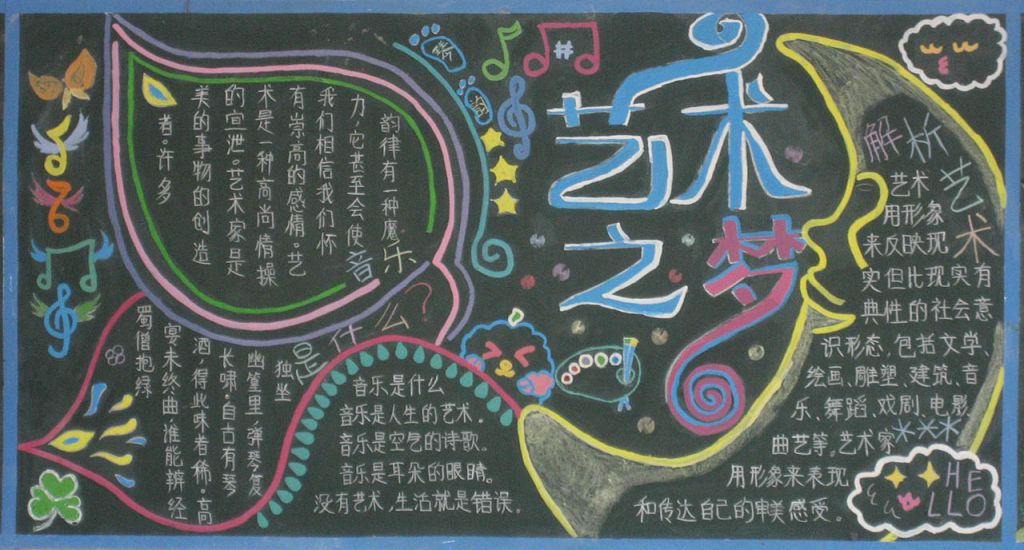 艺术
之梦
琴
韵律有一种魔
力,它甚至会使
我们相信我们怀
有崇高的感情。艺
术是一种高尚情操
的宣泄。艺术家是
美的事物的创造
者。许多
音乐是什么?
独坐
幽篁里,弹琴复
长啸。自古有琴
酒,得此味者稀。高
宴未终曲,谁能辨经
蜀僧抱绿
音乐是什么
音乐是人生的艺术。
音乐是空气的诗歌。
音乐是耳朵的眼睛。
没有艺术,生活就是错误。
解析艺术
艺术
用形象
来反映现
实但比现实有
典性的社会意
识形态,包括文学、
绘画、雕塑、建筑、音
乐、舞蹈、戏剧、电影
曲艺等。艺术家
用形象来表现
和传达自己的审美感受。
HE
LLO